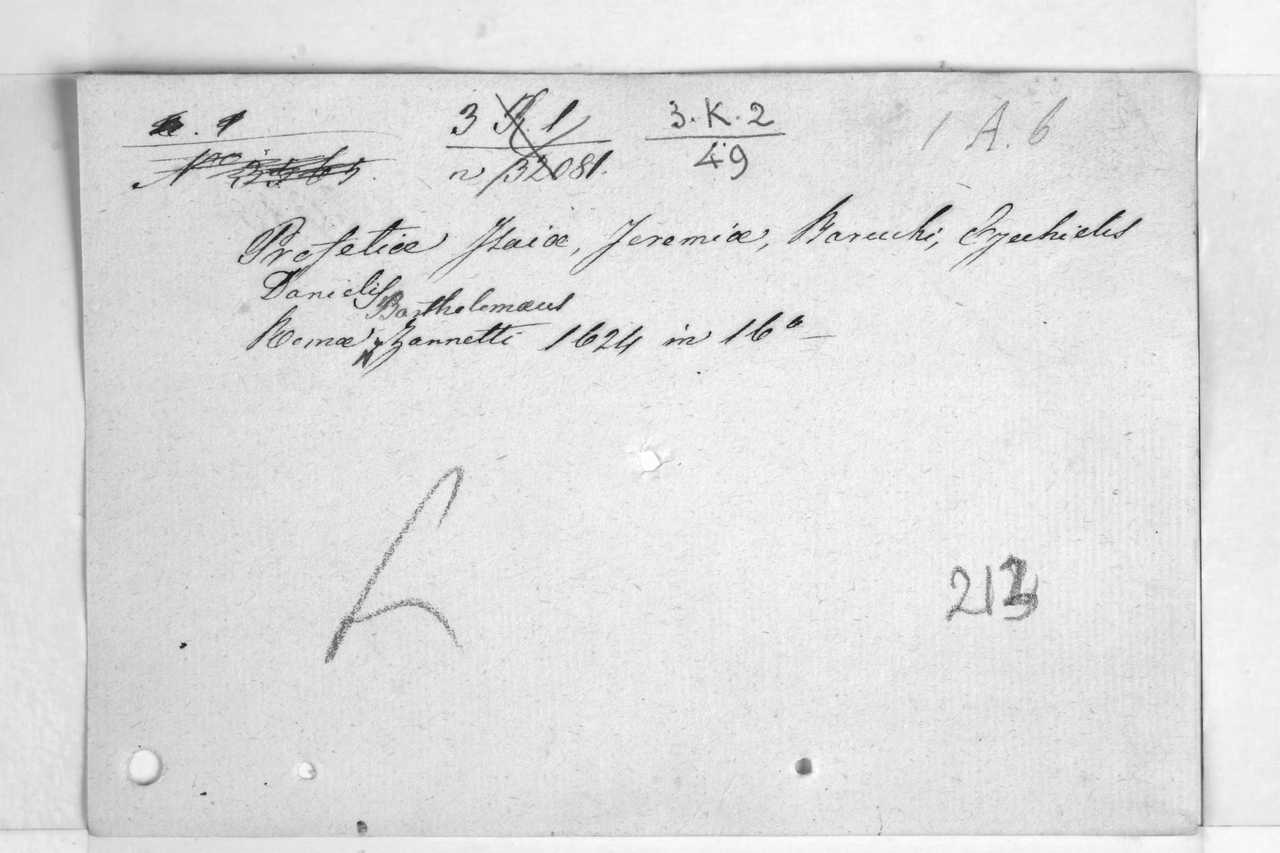 3 K 1 3.K.2 1 A. 6
n 32081. 49
Profetiæ Isaiæ, Jeremiæ, Baruchi, Ezechielis
Danielis
Bartholomæus
Romæ Zannetti 1624 in 16º
213